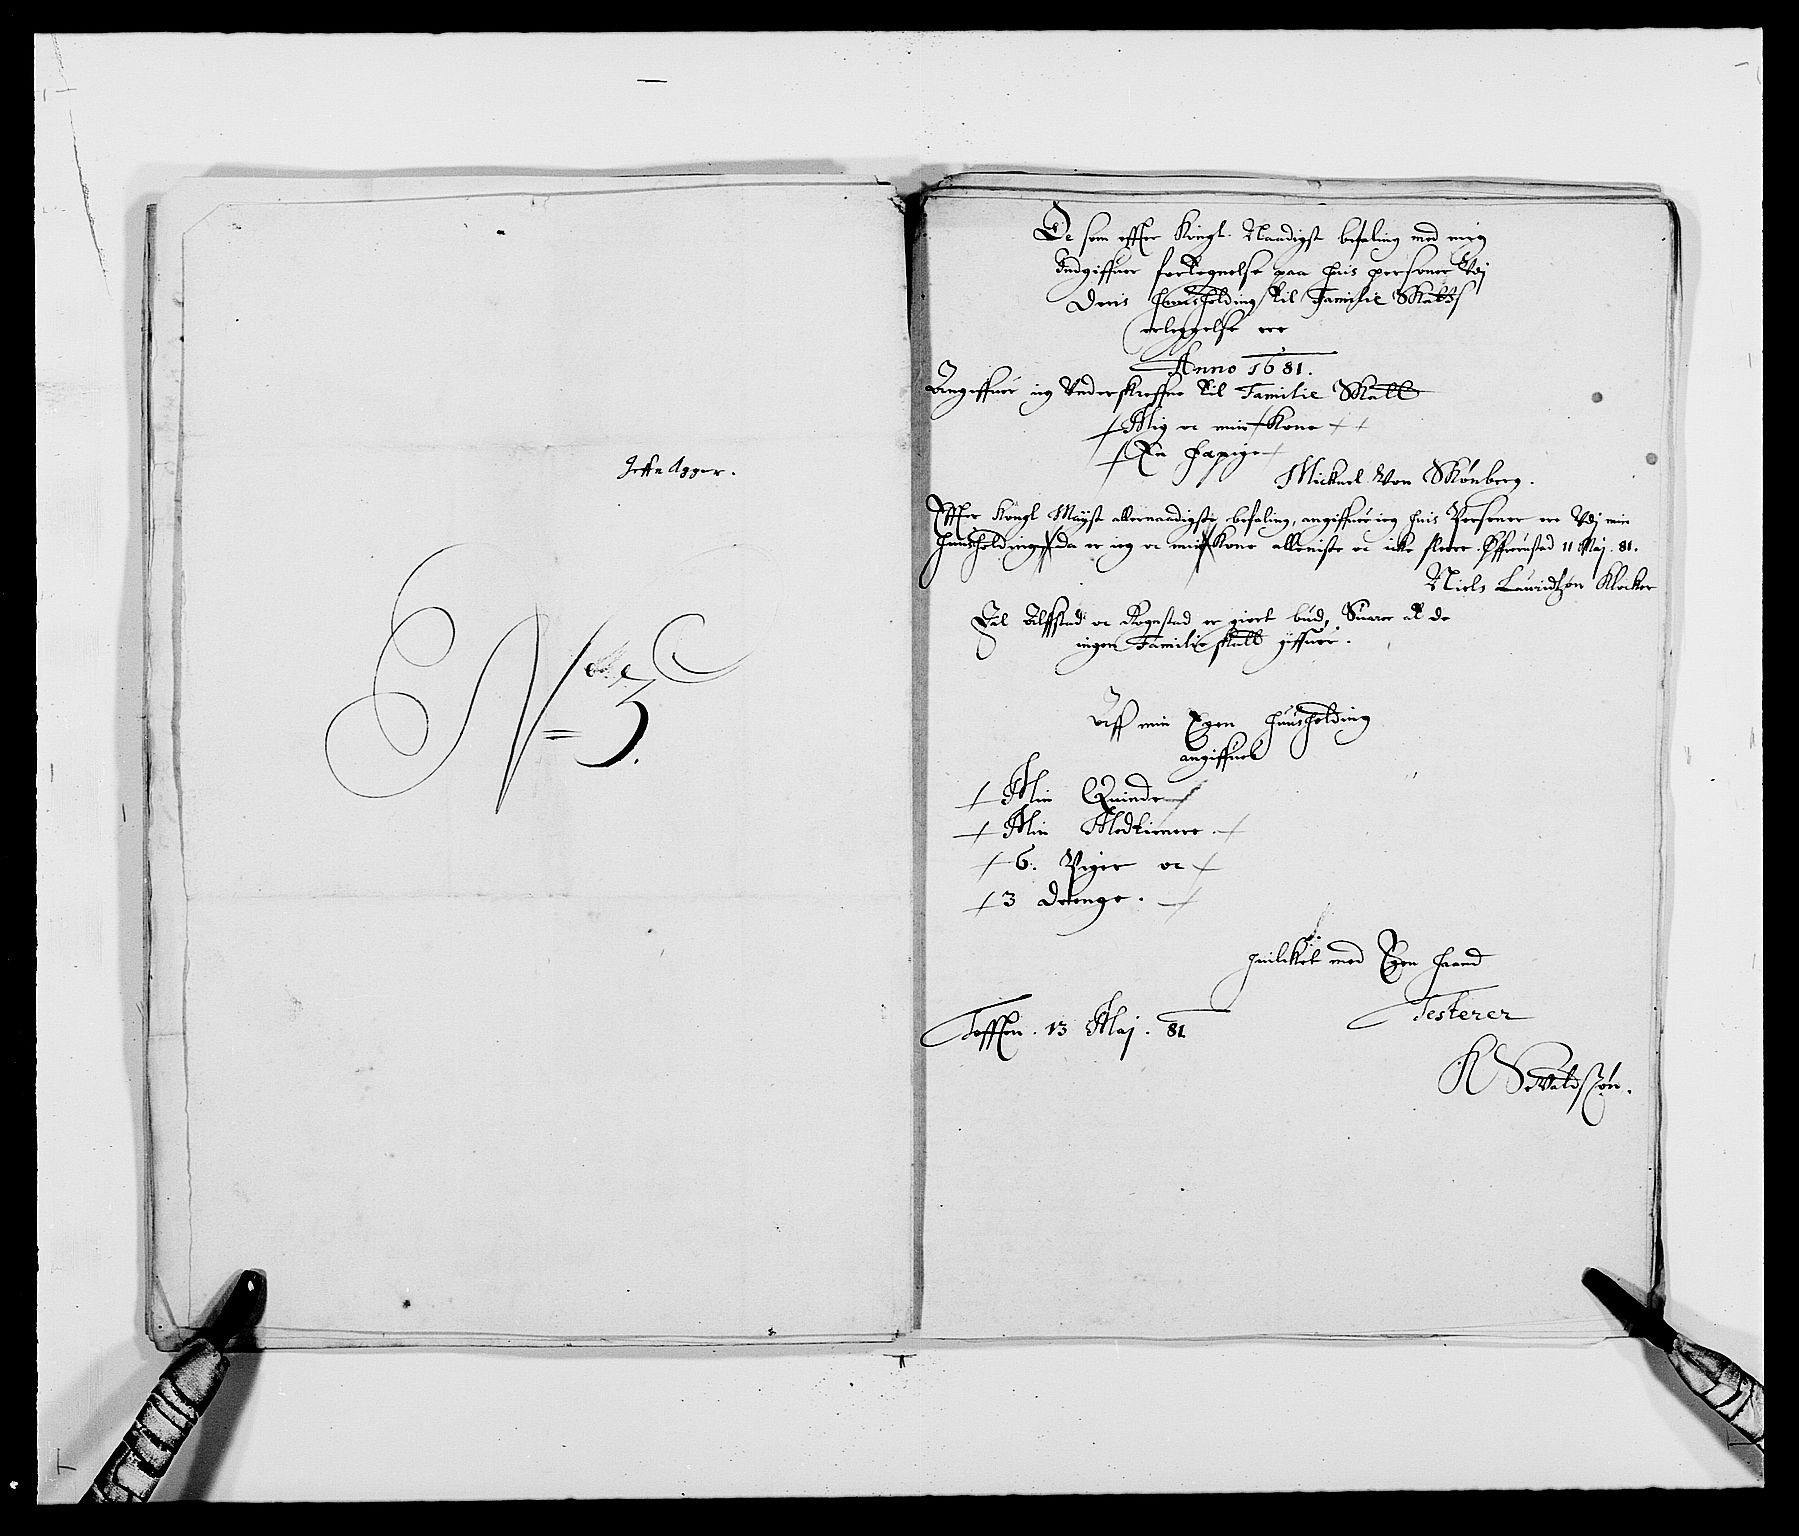 Jeffn Agger.
N 3.
De som effter Kongl. Naadigst befaling med mig
Indgiffuer fortegnelse paa huis personer Vdj
Deris huusholding til Familie Skatts
erleggelse ere
Anno 1681.
Angiffuer ieg Vnderskreffne til Familie Skatt
Mig oc min Kone
En Fapige
Mickael Von Skönberg.
Effter Kongl Mayst allernaadigste befaling, angiffuer ieg huis Personer ere Vdj min
huusholding, da er ieg oc min Kone alleniste oc icke fleere. Effrenstad 11 Maj. 81.
Niels Lauridtzøn Klocker
Til Alffstad oc Rognstad er giort bud, Suarer at de
ingen Familie skatt giffuer.
Aff min Egen huusholding
angiffuet
Min Quinde
Min Modtimere
6. Piger oc
3 drenge.
huilcket med Egen haand
Testerer
Tofften. 13 Maj. 81